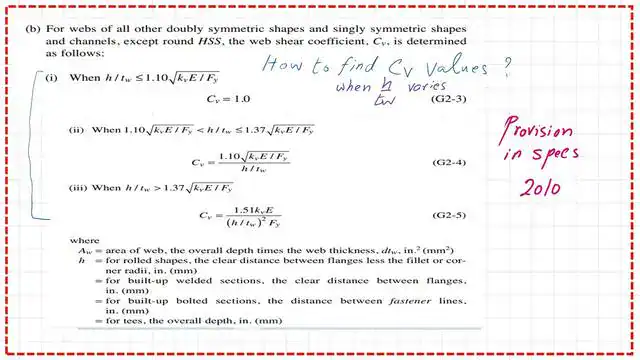 (b) For webs of all other doubly symmetric shapes and singly symmetric shapes
and channels, except round HSS, the web shear coefficient, Cv, is determined
as follows:
How to find Cv Values ?
when h/tw varies
(i) When h / tw ≤ 1.10√(kvE / Fy)
Cv = 1.0 (G2-3)
(ii) When 1.10√(kvE / Fy) < h / tw ≤ 1.37√(kvE / Fy)
Cv = 1.10√(kvE / Fy) / (h / tw) (G2-4)
(iii) When h / tw > 1.37√(kvE / Fy)
Cv = 1.51kvE / ((h / tw)² Fy) (G2-5)
Provision
in specs
2010
where
Aw = area of web, the overall depth times the web thickness, dtw, in.² (mm²)
h = for rolled shapes, the clear distance between flanges less the fillet or cor-
ner radii, in. (mm)
= for built-up welded sections, the clear distance between flanges,
in. (mm)
= for built-up bolted sections, the distance between fastener lines,
in. (mm)
= for tees, the overall depth, in. (mm)